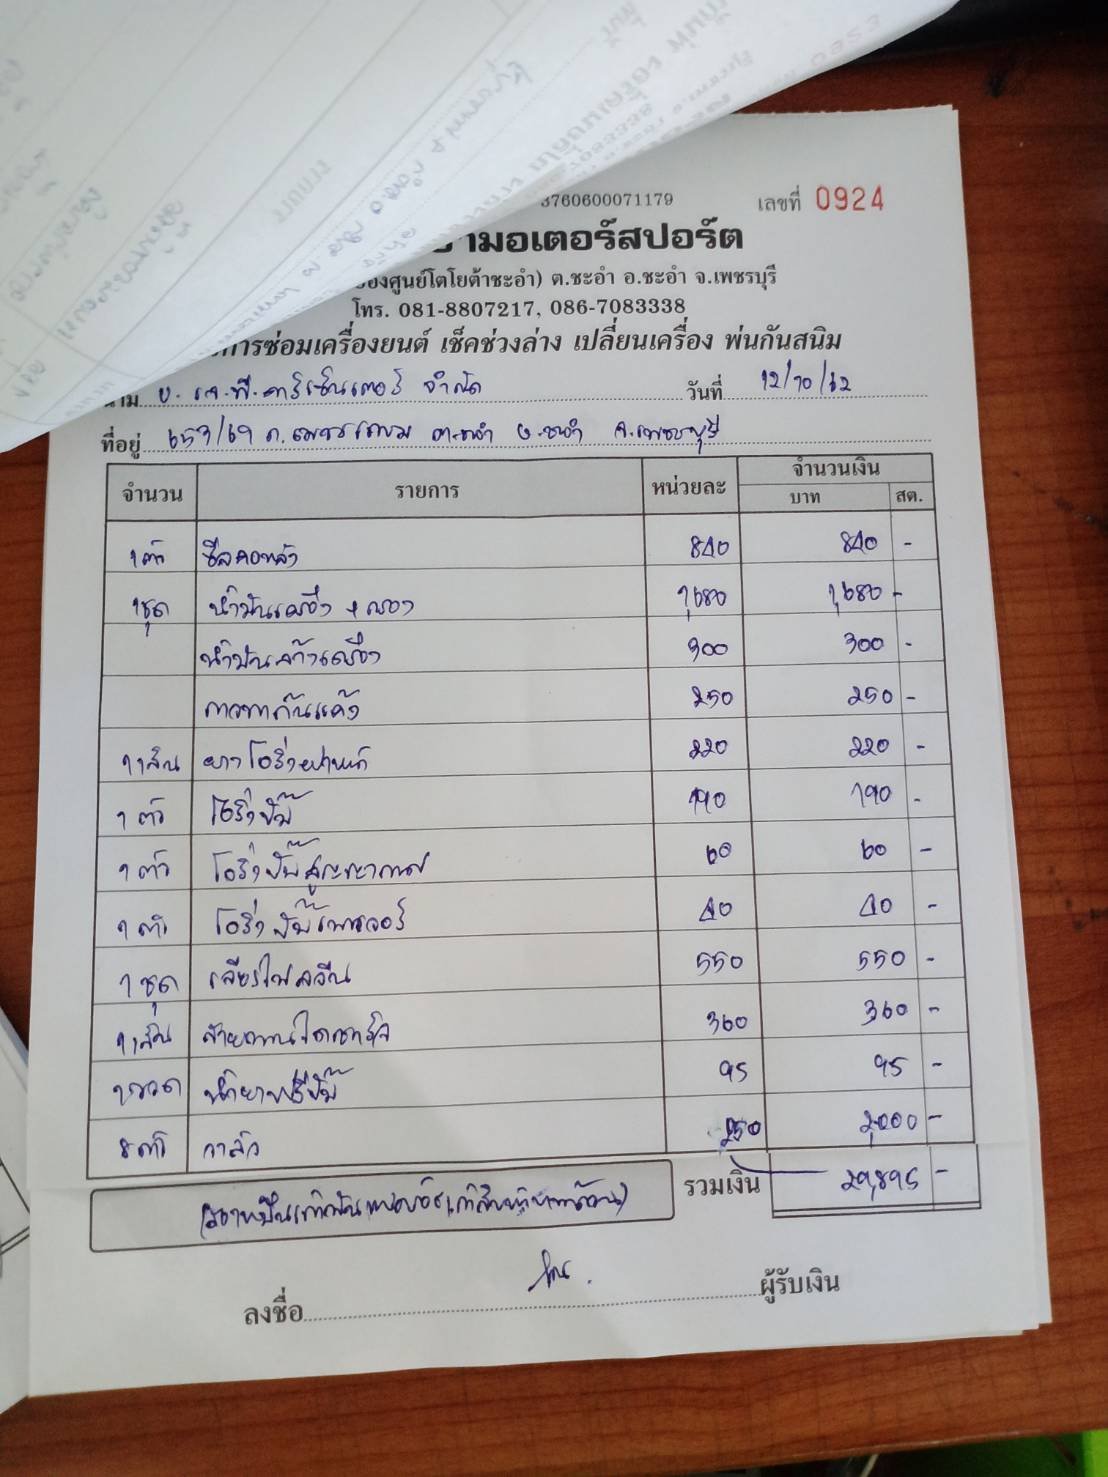 3760600071179 เลขที่ 0924
มอเตอร์สปอร์ต
ศูนย์โตโยต้าชะอำ) ต.ชะอำ อ.ชะอำ จ.เพชรบุรี
โทร. 081-8807217, 086-7083338
การซ่อมเครื่องยนต์ เช็คช่วงล่าง เปลี่ยนเครื่อง พ่นกันสนิม
บ. เจ.พี.คาร์เซ็นเตอร์ จำกัด วันที่ 12/10/62
ที่อยู่ 659/69 ถ.เพชรเกษม ต.ชะอำ อ.ชะอำ จ.เพชรบุรี
จำนวน รายการ หน่วยละ จำนวนเงิน
บาท สต.
1ตัว ซีลคอหลัง 840 840 -
1ชุด น้ำมันเครื่อง + กรอง 1,680 1,680 -
น้ำมันล้างเครื่อง 300 300 -
กาวทากันแค้ง 250 250 -
1เส้น ยางโอริ่งฝาหน้า 220 220 -
1 ตัว โอริ่งปั๊ม 190 190 -
1 ตัว โอริ่งปั๊มสูญญากาศ 60 60 -
1 ตัว โอริ่งปั๊มเพาเวอร์ 40 40 -
1 ชุด เคลียร์ไฟลีน 550 550 -
1เส้น สายพานไดชาร์จ 360 360 -
1ขวด น้ำยาฟรีปั๊ม 95 95 -
8ตัว วาล์ว 250 2,000 -
รวมเงิน 29,895 -
(สองหมื่นเก้าพันแปดร้อยเก้าสิบห้าบาทถ้วน)
ลงชื่อ ผู้รับเงิน